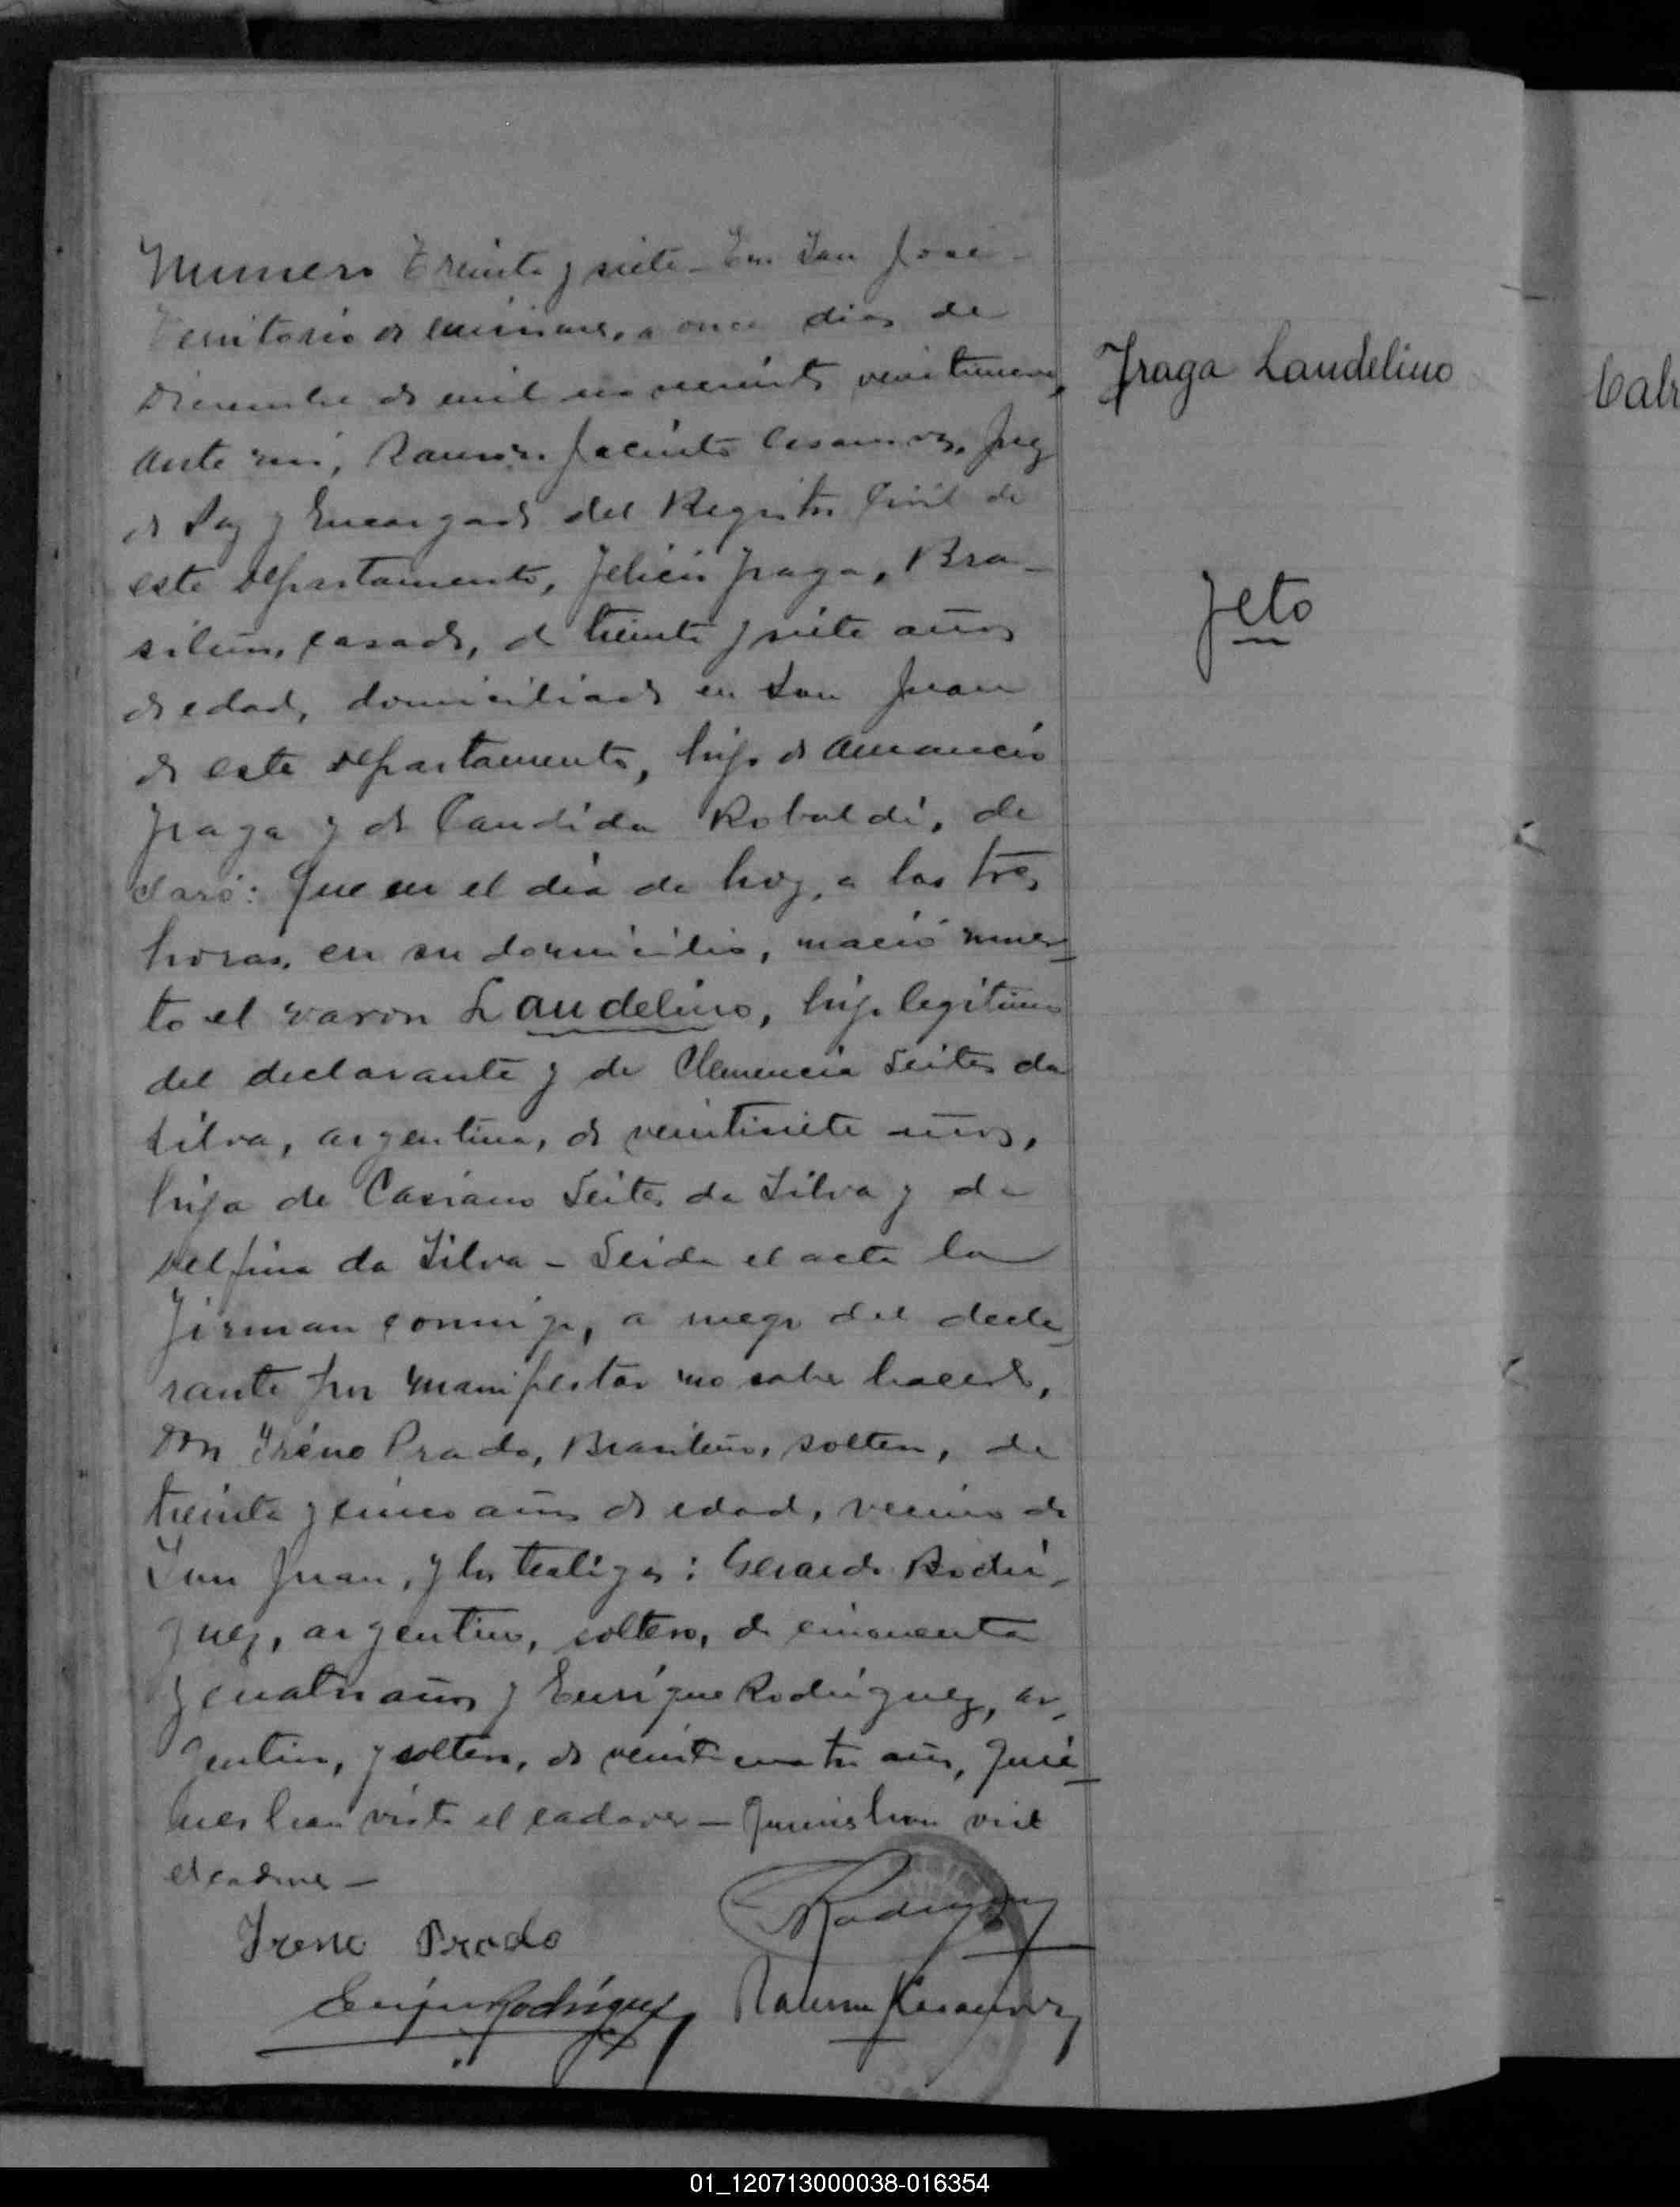 Numero Treinta y siete - En San José
Territorio de Misiones, a once dias de
Diciembre de mil novecientos veintinueve,
ante mi, Ramon Jacinto Casamayor, Juez
de Paz y Encargado del Registro Civil de
este departamento, Felicio Fraga, Bra-
silero, casado, de treinta y siete años
de edad, domiciliado en San Juan
de este departamento, hijo de Amancio
Fraga y de Candida Robaldi, de
claró: Que en el dia de hoy, a las tres
horas, en su domicilio, nació muer-
to el varon Laudelino, hijo legitimo
del declarante y de Clemencia Leites da
Silva, argentina, de veintisiete años,
hija de Casiano Leites da Silva y de
Delfina da Silva - Leida el acta la
firman conmigo, a ruego del decla
rante por manifestar no saber hacerlo,
Don Iréno Prado, Brasilero, soltero, de
treinta y cinco años de edad, vecino de
San Juan, y los testigos: Gerardo Rodri-
guez, argentino, soltero, de cincuenta
y cuatro años y Enrique Rodriguez, ar-
gentino, soltero, de veinticuatro años, quie-
nes han visto el cadaver - quienes han visto
el cadaver -
Ireno Prado
Rodriguez
Enrique Rodriguez
Ramon
Fraga Laudelino
Feto
01_120713000038-016354